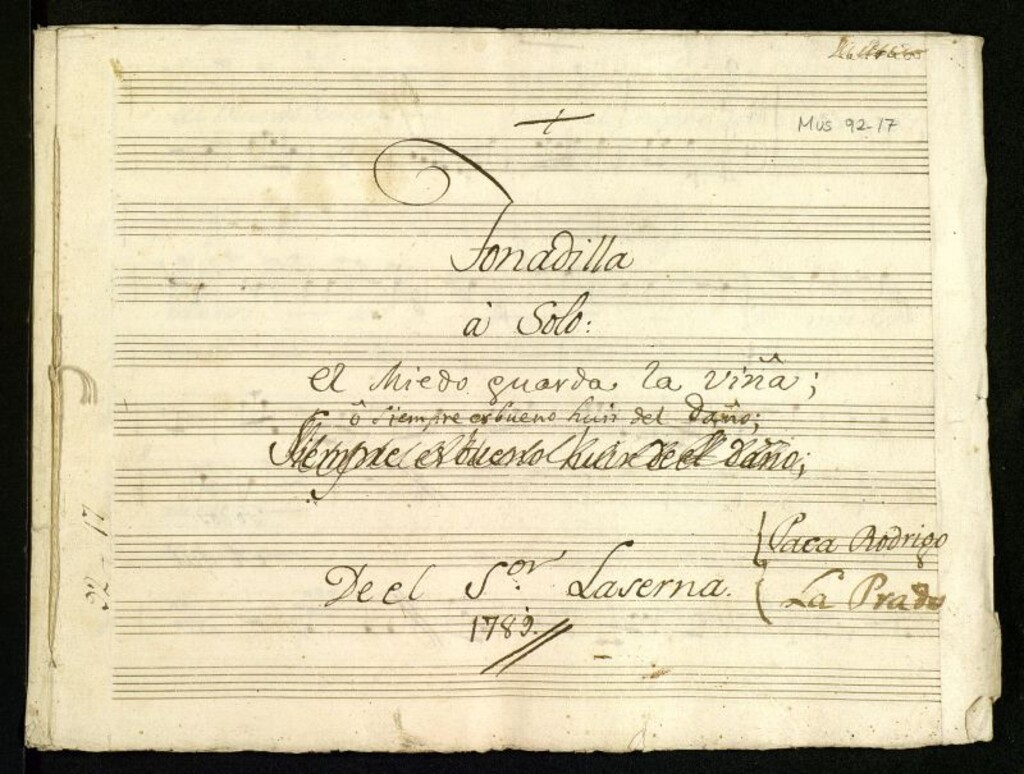 Mus 92-17
Tonadilla
à Solo:
el Miedo guarda la viña;
ô siempre es bueno huir del daño;
Siempre es bueno huir de el daño;
Paca Rodrigo
De el S.or Laserna.
La Prado
1789.
92-17